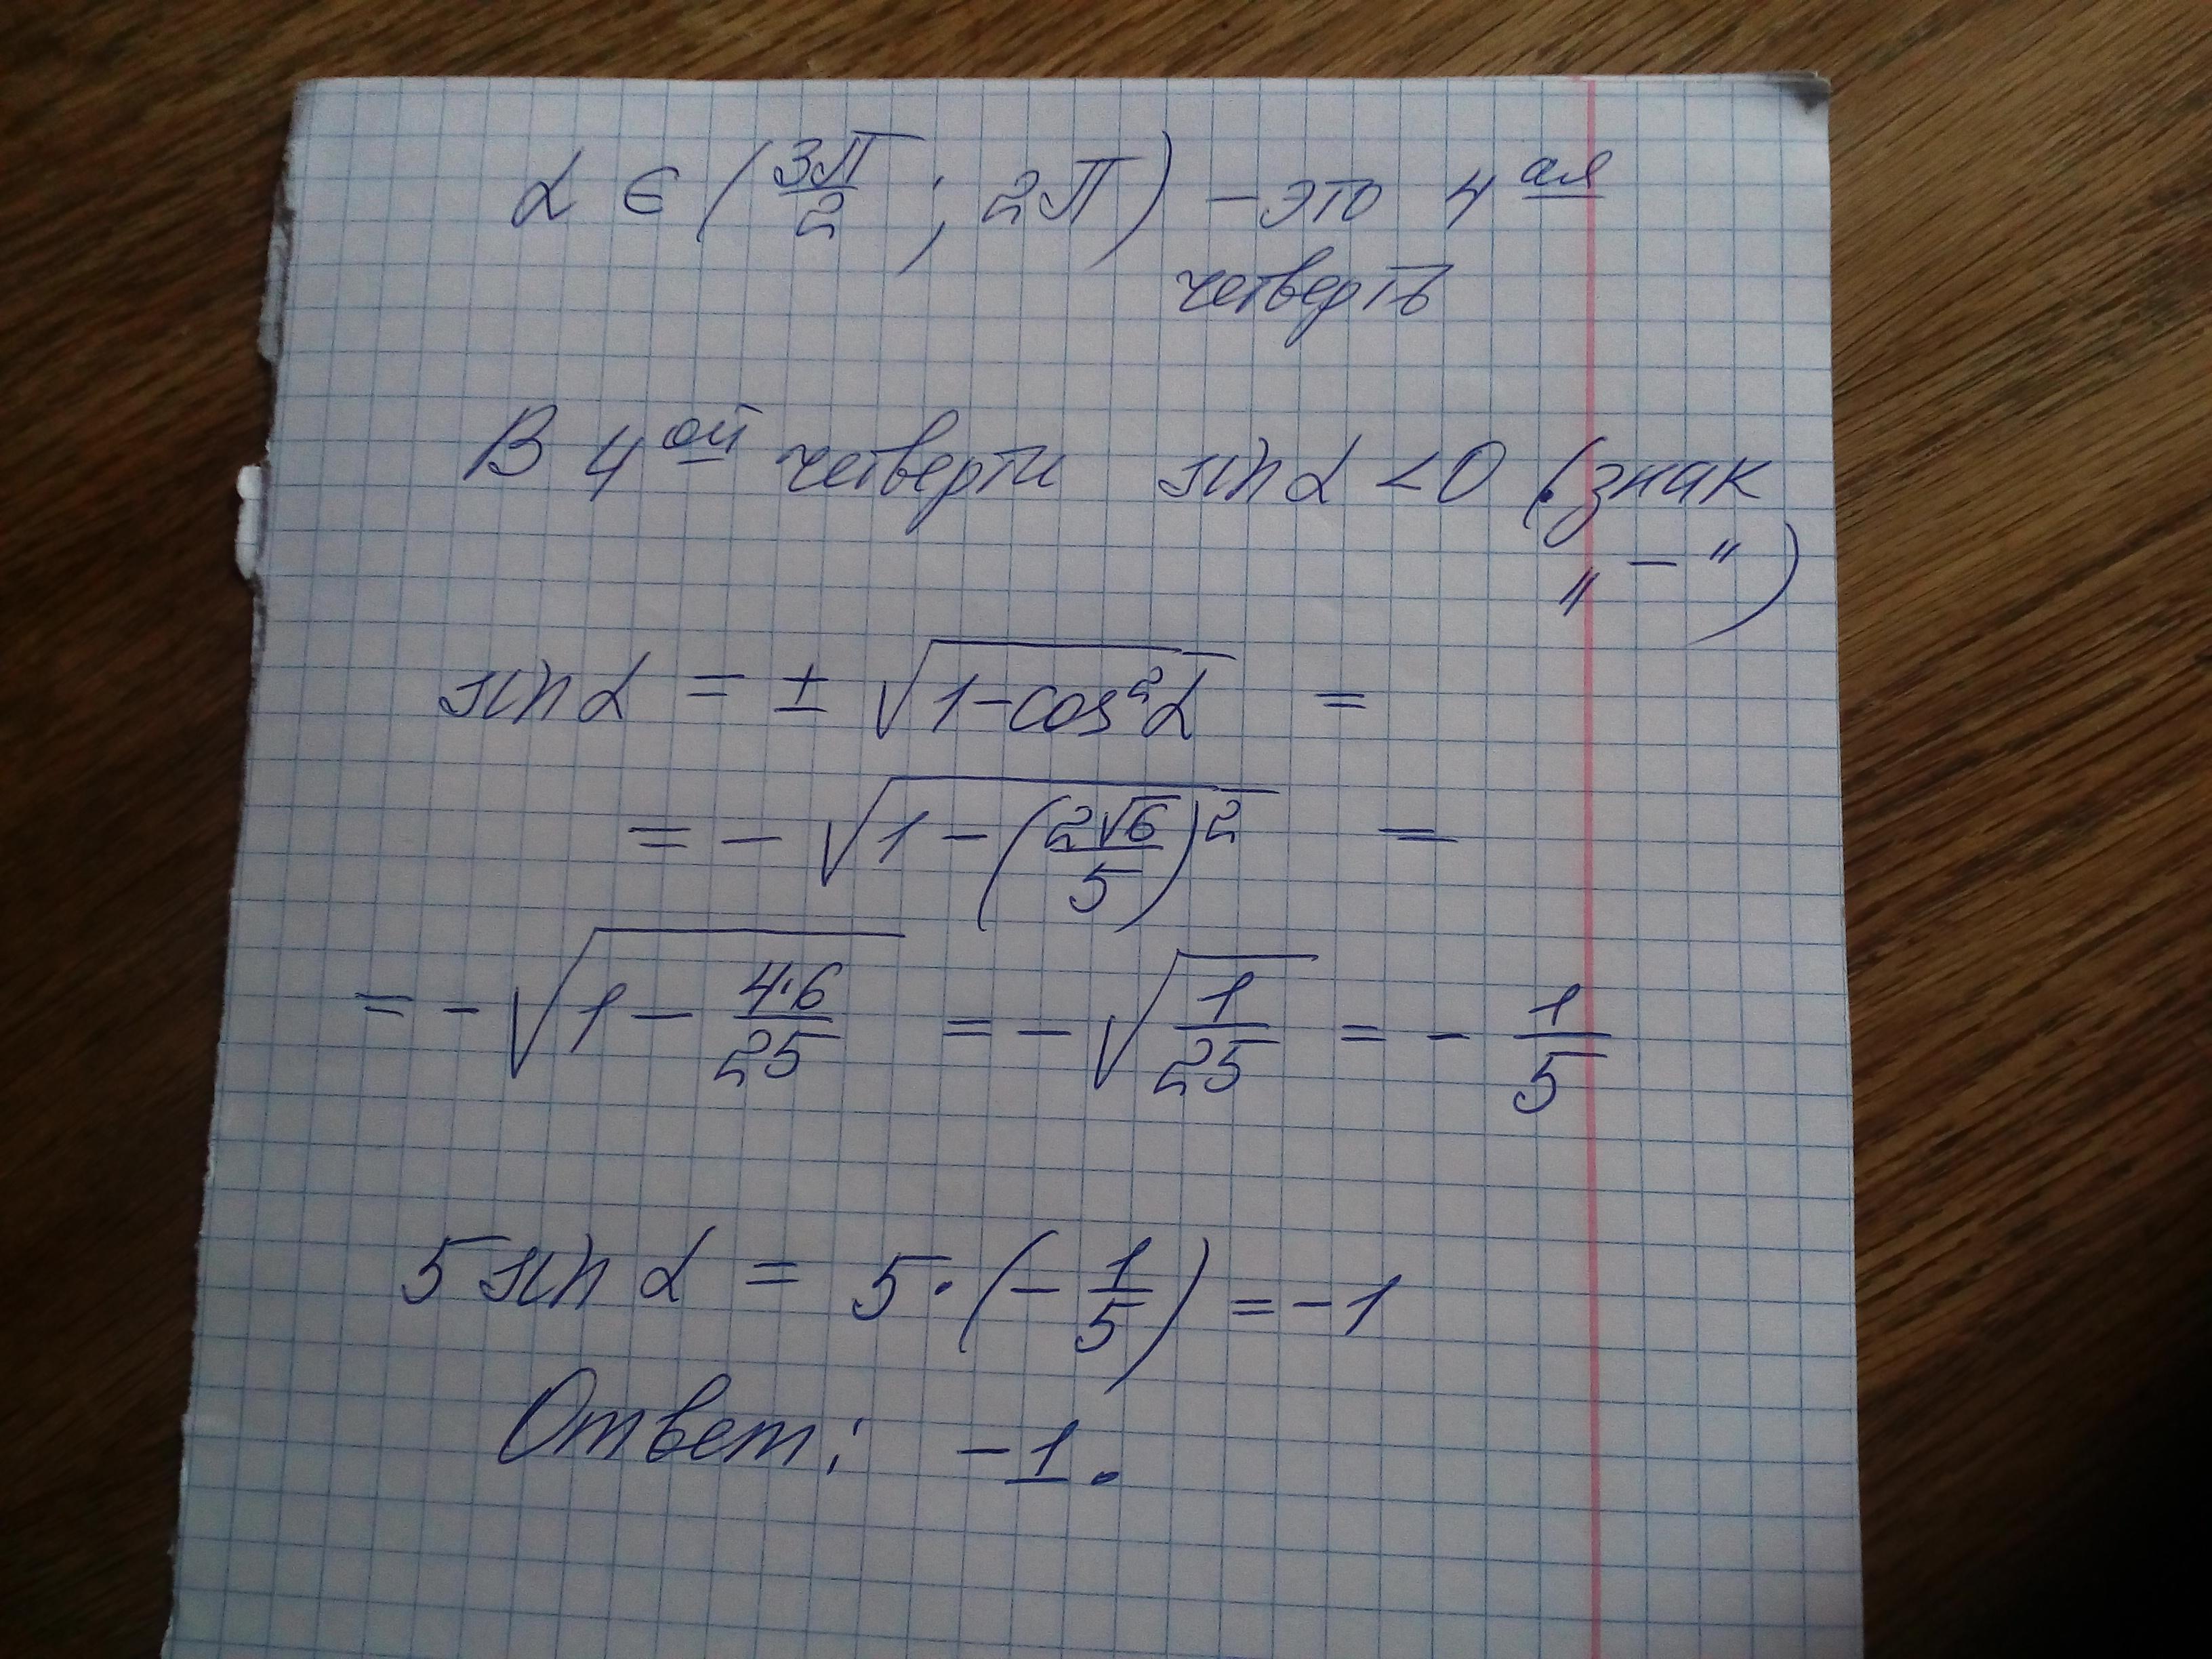 α ∈ (3π/2 ; 2π) – это 4ая
четверть
В 4ой четверти sin α < 0 (знак
„ – “)
sin α = ± √(1 - cos²α) =
= - √(1 - (2√6/5)²) =
= - √(1 - 4·6/25) = - √(1/25) = - 1/5
5 sin α = 5 · (- 1/5) = -1
Ответ: -1.